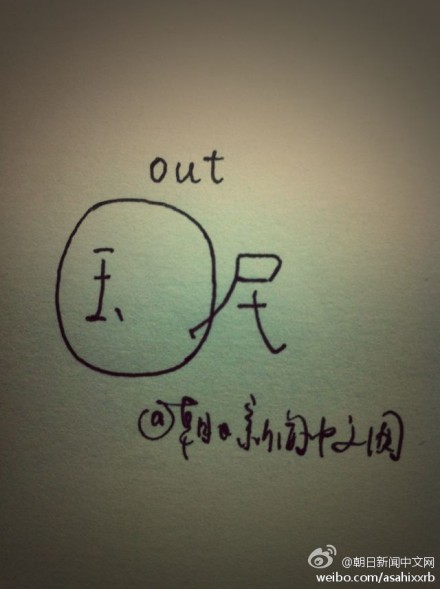 out
玉 民
@朝日新闻中文网
@朝日新闻中文网
weibo.com/asahixxrb